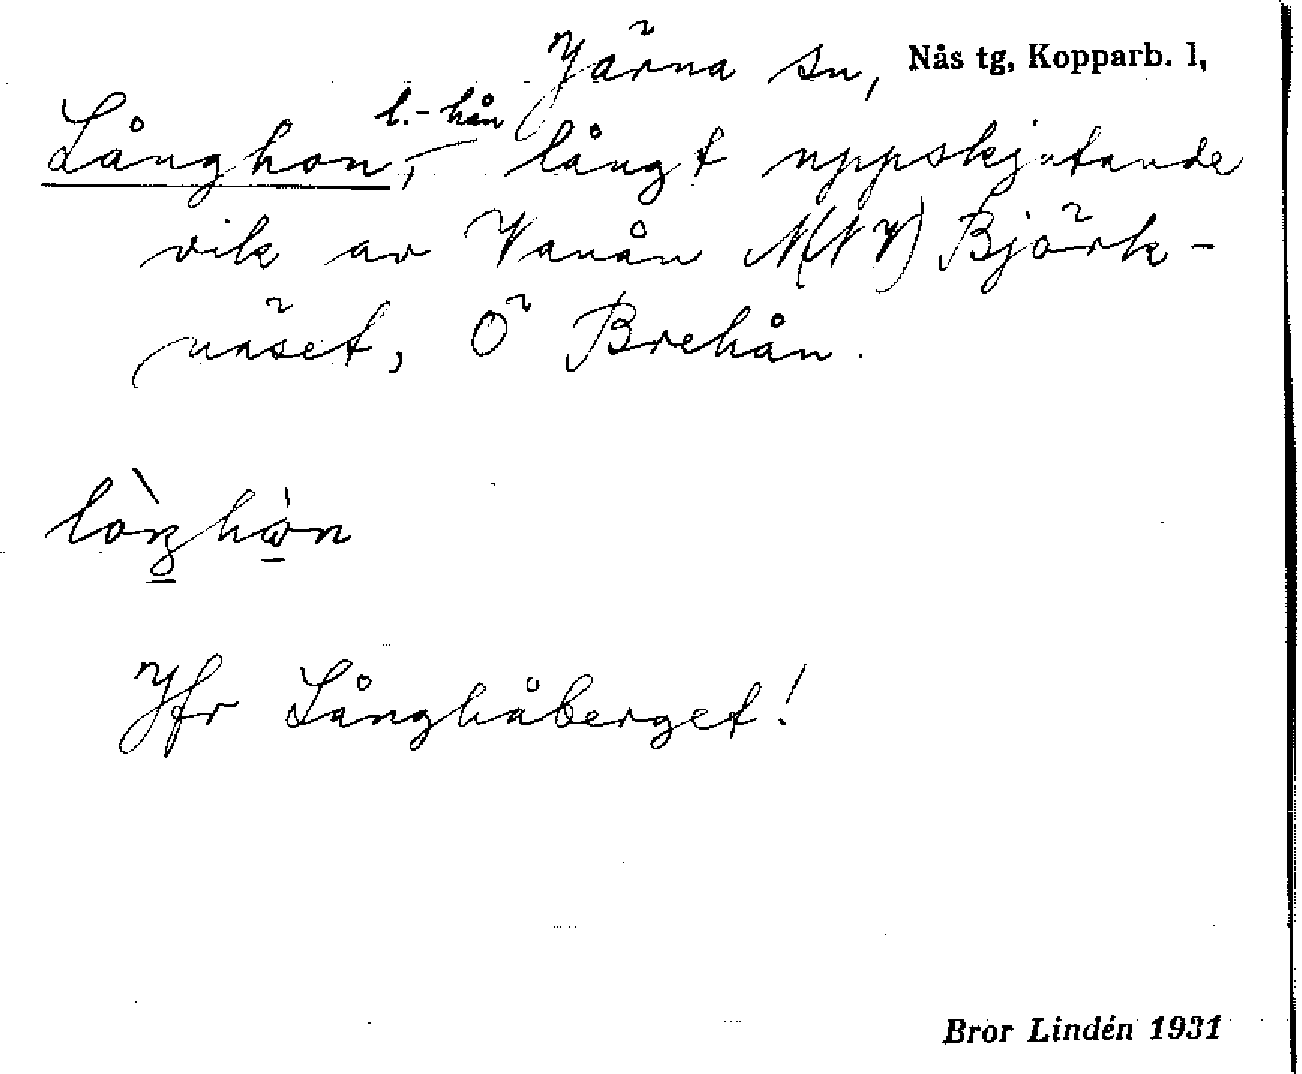 Järna sn, Nås tg, Kopparb. l,
l.-hån
Långhon, långt uppskjutande
vik av Vanån N(NV) Björk-
näset, Ö Brehån.
lòŋhòn
Jfr Långhåberget!
Bror Lindén 1931